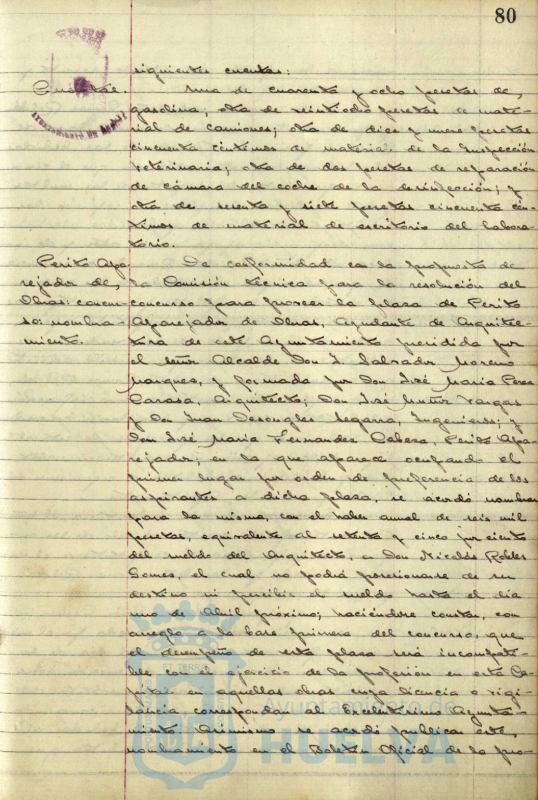 80
siguientes cuentas:
Cuentas. Una de cuarenta y ocho pesetas de
gasolina; otra de veintiocho pesetas de mate-
rial de camiones; otra de diez y nueve pesetas
cincuenta céntimos de material de la Inspección
veterinaria; otra de dos pesetas de reparación
de cámara del coche de la desinfección; y
otra de sesenta y siete pesetas cincuenta cén-
timos de material de escritorio del labora-
torio.
Perito Apa- De conformidad con la propuesta de
rejador de la Comisión técnica para la resolución del
Obras: concur- concurso para proveer la plaza de Perito
so: nombra- Aparejador de Obras, Ayudante de Arquitec-
miento. tura de este Ayuntamiento presidida por
el señor Alcalde Don J. Salvador Moreno
Marquez, y formada por Don José María Perez
Carasa, Arquitecto; Don José Muñiz Vargas
y Don Juan Segarra, Ingenieros; y
Don José María Fernandez Cabeza, Perito Apa-
rejador; en la que aparece ocupando el
primer lugar por orden de preferencia de los
aspirantes a dicha plaza, se acordó nombrar
para la misma, con el haber anual de seis mil
pesetas, equivalente al setenta y cinco por ciento
del sueldo del Arquitecto, a Don Nicolás Robles
Gomez, el cual no podrá posesionarse de su
destino ni percibir el sueldo hasta el día
uno de Abril próximo; haciéndose constar, con
arreglo a la base primera del concurso, que
el desempeño de esta plaza será incompati-
ble con el ejercicio de la profesión en esta Ca-
pital en aquellas obras cuya licencia o vigi-
lancia correspondan al Excelentísimo Ayunta-
miento. Asimismo se acordó publicar este
nombramiento en el Boletín Oficial de la pro-
ET TERRÆ
Ayuntamiento de
HUELVA